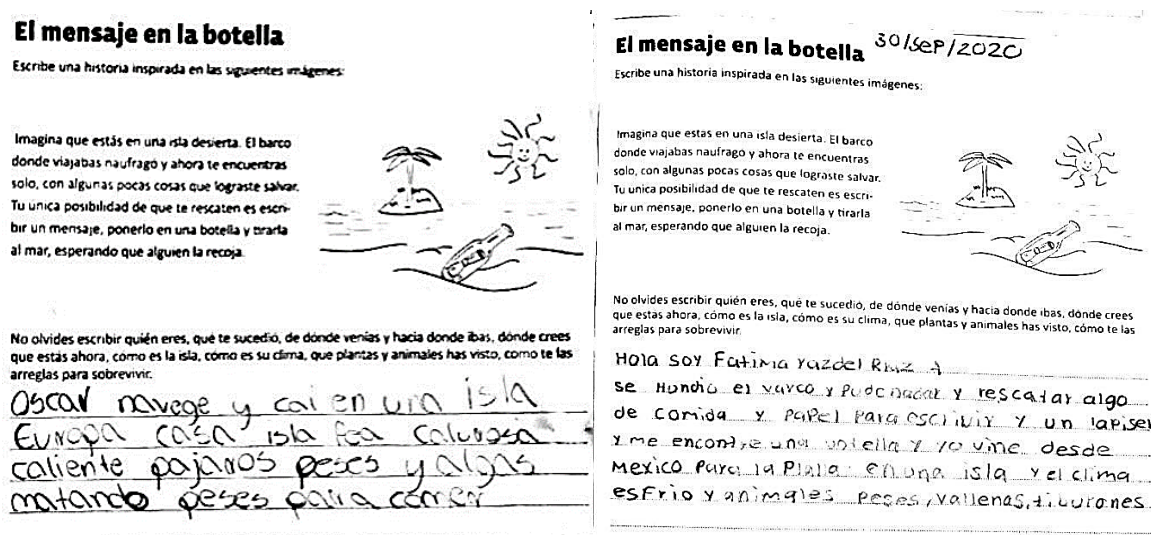 El mensaje en la botella
Escribe una historia inspirada en las siguientes imágenes:
Imagina que estás en una isla desierta. El barco
donde viajabas naufragó y ahora te encuentras
solo, con algunas pocas cosas que lograste salvar.
Tu única posibilidad de que te rescaten es escri-
bir un mensaje, ponerlo en una botella y tirarla
al mar, esperando que alguien la recoja.
No olvides escribir quién eres, qué te sucedió, de dónde venías y hacia donde ibas, dónde crees
que estás ahora, cómo es la isla, cómo es su clima, que plantas y animales has visto, cómo te las
arreglas para sobrevivir.
Oscar navege y cai en una isla
Europa casa isla fea calurosa
caliente pajaros peses y algas
matando peses para comer
El mensaje en la botella 30/sep/2020
Escribe una historia inspirada en las siguientes imágenes:
Imagina que estas en una isla desierta. El barco
donde viajabas naufrago y ahora te encuentras
solo, con algunas pocas cosas que lograste salvar.
Tu unica posibilidad de que te rescaten es escri-
bir un mensaje, ponerlo en una botella y tirarla
al mar, esperando que alguien la recoja.
No olvides escribir quién eres, qué te sucedió, de dónde venías y hacia donde ibas, dónde crees
que estás ahora, cómo es la isla, cómo es su clima, que plantas y animales has visto, cómo te las
arreglas para sobrevivir.
Hola soy Fatima yazdel Ruiz
se Hundio el varco y pude nadar y rescatar algo
de comida y papel para escrivir y un lapiser
y me encontre una votella y yo vine desde
Mexico para la Plalla en una isla y el clima
es Frio y animales peses, vallenas, tiburones